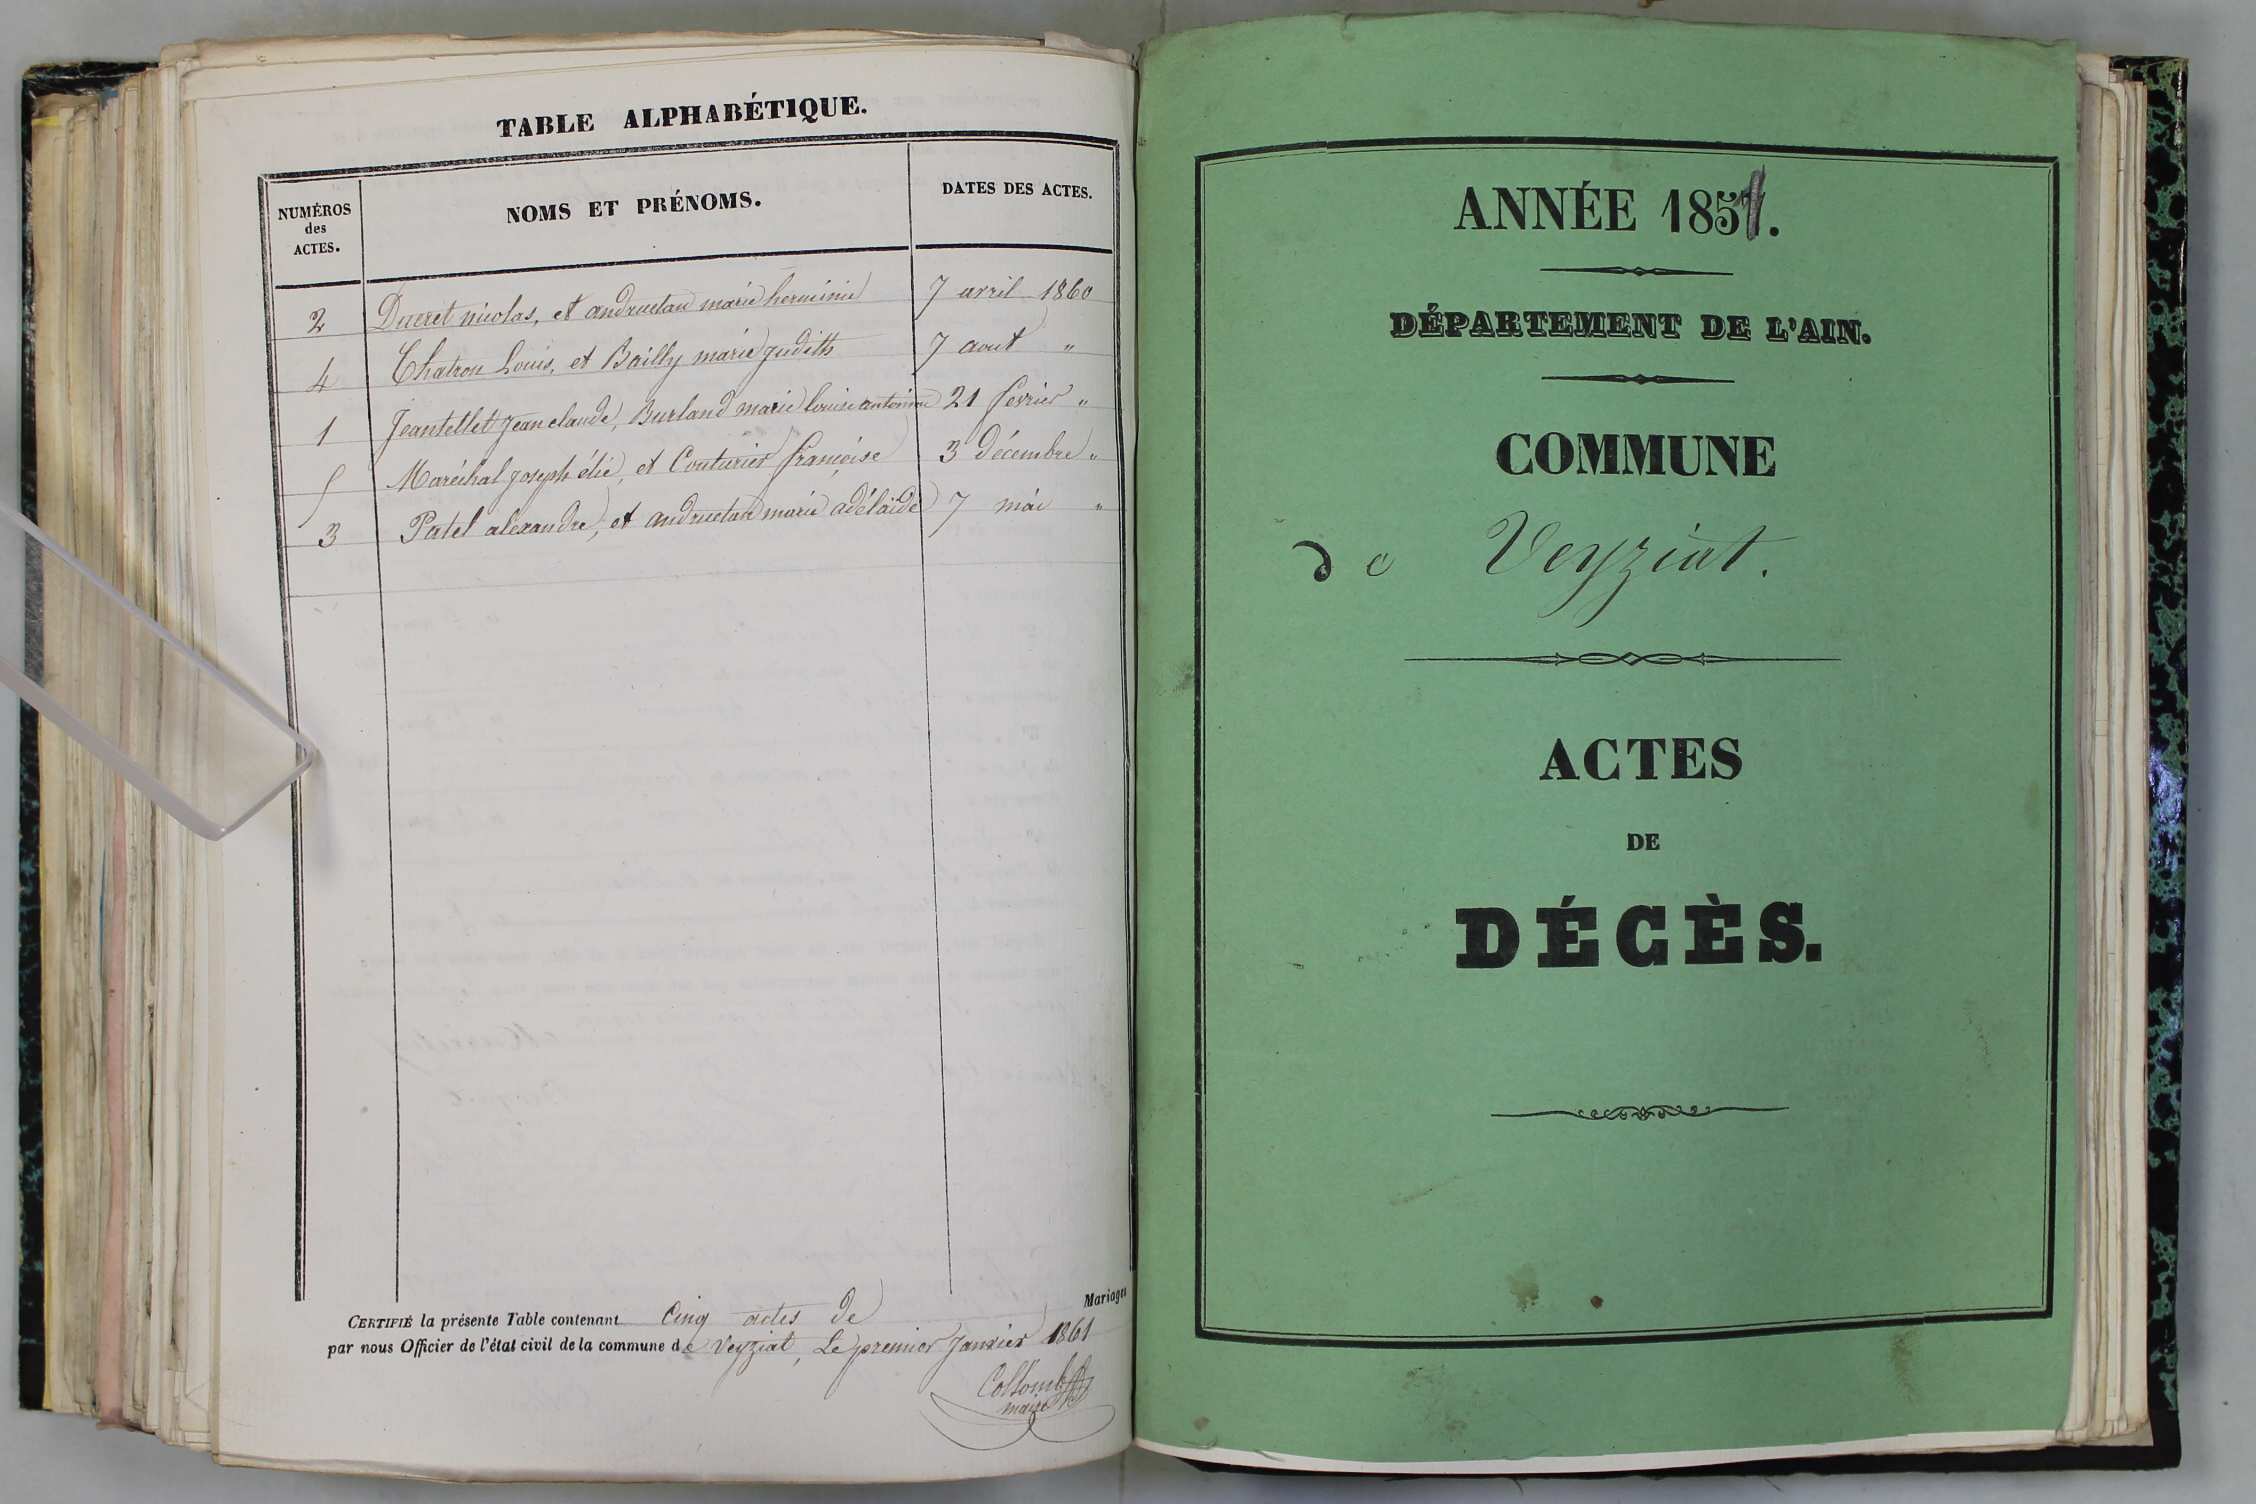 TABLE ALPHABÉTIQUE.
NUMÉROS
des
ACTES.
NOMS ET PRÉNOMS.
DATES DES ACTES.
2 Ducret nicolas, et andruetan marie herminie 7 avril 1860
4 Chatron Louis, et Bailly marie judith 7 aout "
1 Jeantellet jean claude, Burland marie louise antonine 21 fevrier "
5 Maréchal joseph élie, et Couturier françoise 3 Décembre "
3 Patel alexandre, et andruetan marie adélaïde 7 mai "
CERTIFIÉ la présente Table contenant Cinq actes de Mariages
par nous Officier de l'état civil de la commune de Veyziat, Le premier Janvier 1861
Collomb
maire
ANNÉE 1857.
DÉPARTEMENT DE L'AIN.
COMMUNE
de Veyziat.
ACTES
DE
DÉCÈS.